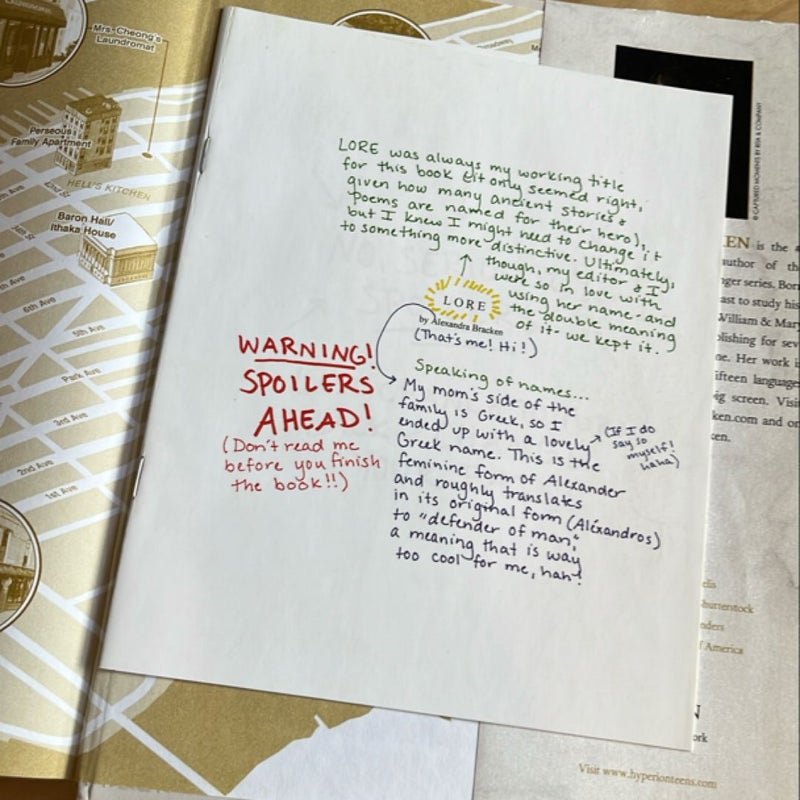 Mrs. Cheong's
Laundromat
Perseous
Family Apartment
HELL'S KITCHEN
42nd St
34th St
Baron Hall/
Ithaka House
Broadway
6th Ave
5th Ave
Park Ave
3rd Ave
2nd Ave
1st Ave
LORE was always my working title
for this book (it only seemed right,
given how many ancient stories &
poems are named for their hero),
but I knew I might need to change it
to something more distinctive. Ultimately,
though, my editor & I
were so in love with
using her name - and
the double meaning
of it - we kept it.
LORE
by Alexandra Bracken
(That's me! Hi!)
WARNING!
SPOILERS
AHEAD!
(Don't read me
before you finish
the book!!)
Speaking of names...
My mom's side of the
family is Greek, so I
ended up with a lovely
Greek name. This is the
feminine form of Alexander
and roughly translates
in its original form (Aléxandros)
to "defender of man,"
a meaning that is way
too cool for me, hah!
(If I do
say so
myself!
haha)
© CAPTURED MOMENTS BY RITA & COMPANY
KEN is the #
author of th
nger series. Born
ast to study his
William & Mary
blishing for sev
ne. Her work is
fifteen language
big screen. Visit
ken.com and on
ken.
elis
hutterstock
nders
f America
N
ork
Visit www.hyperionteens.com